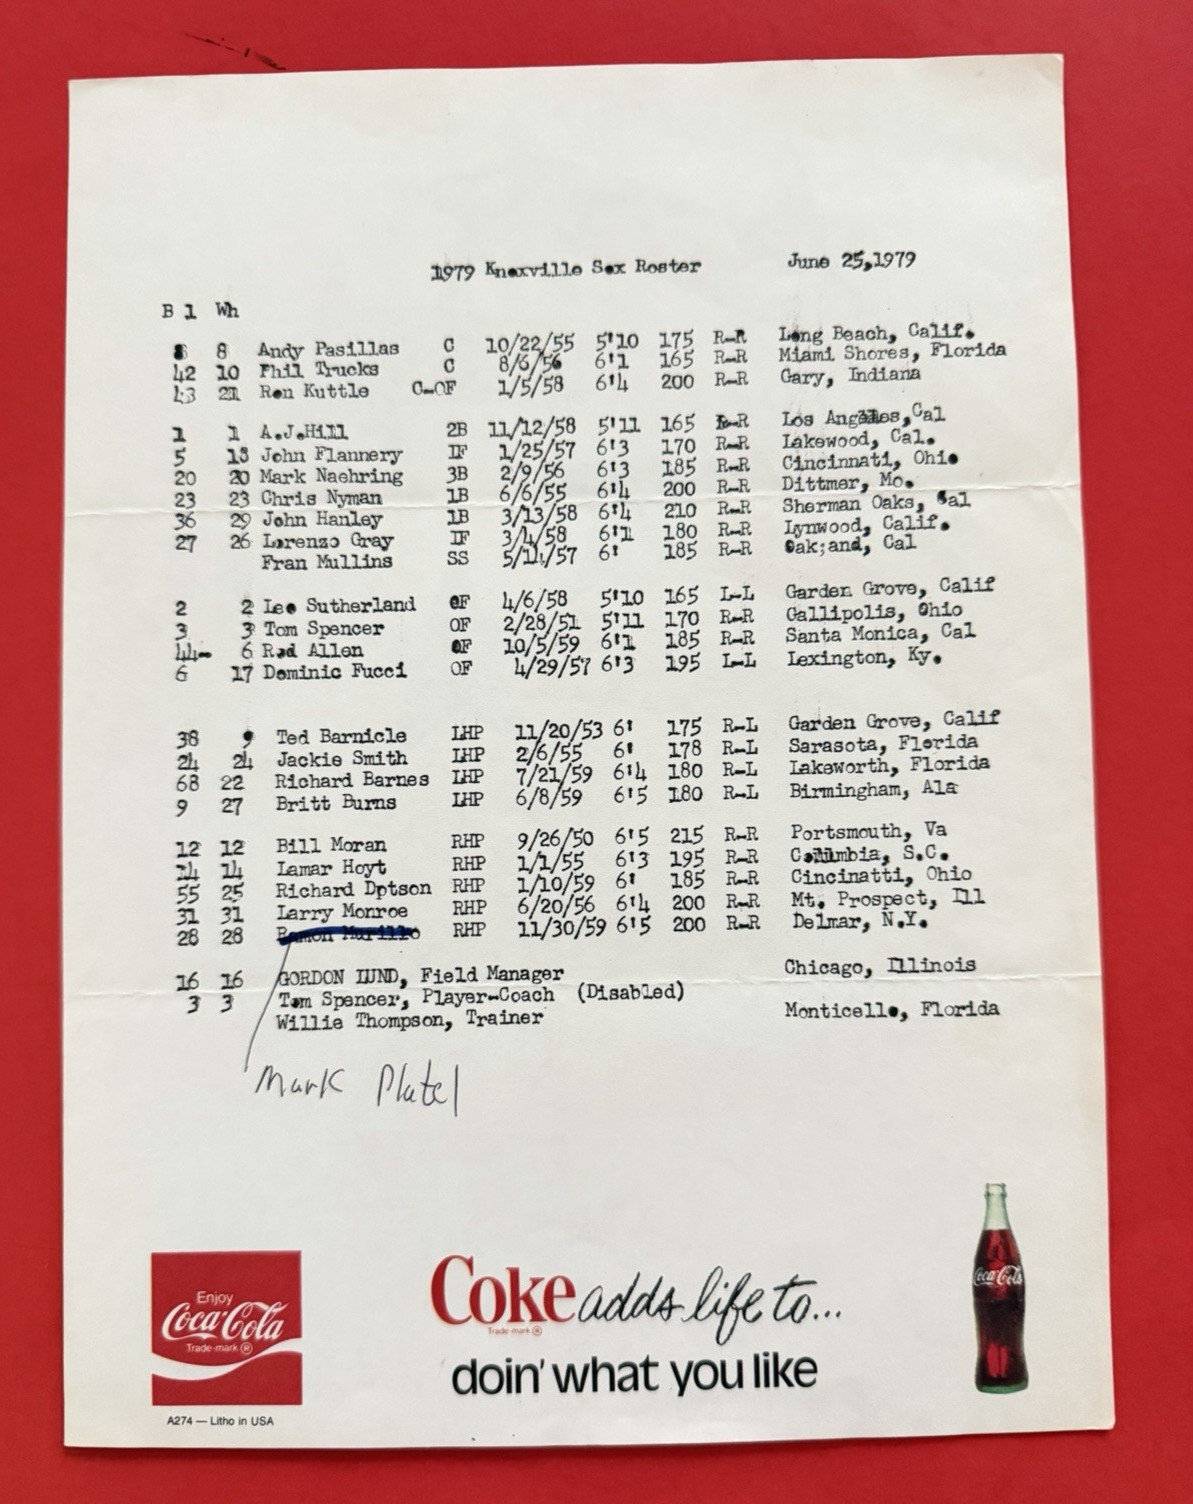 1979 Knoxville Sox Roster June 25,1979
B l Wh
8 8 Andy Pasillas C 10/22/55 5'10 175 R-R Long Beach, Calif.
42 10 Phil Trucks C 8/6/56 6'1 165 R-R Miami Shores, Florida
43 21 Ron Kuttle C-OF 1/5/58 6'4 200 R-R Gary, Indiana
1 1 A.J.Hill 2B 11/12/58 5'11 165 R-R Los Angeles,Cal
5 18 John Flannery IF 1/25/57 6'3 170 R-R Lakewood, Cal.
20 20 Mark Naehring 3B 2/9/56 6'3 185 R-R Cincinnati, Ohio
23 23 Chris Nyman 1B 6/6/55 6'4 200 R-R Dittmer, Mo.
36 29 John Hanley 1B 3/13/58 6'4 210 R-R Sherman Oaks, Cal
27 26 Lorenzo Gray IF 3/4/58 6'1 180 R-R Lynwood, Calif.
Fran Mullins SS 5/14/57 6' 185 R-R Oak;and, Cal
2 2 Lee Sutherland OF 4/6/58 5'10 165 L-L Garden Grove, Calif
3 3 Tom Spencer OF 2/28/51 5'11 170 R-R Gallipolis, Ohio
44- 6 Rod Allen OF 10/5/59 6'1 185 R-R Santa Monica, Cal
6 17 Dominic Fucci OF 4/29/57 6'3 195 L-L Lexington, Ky.
38 9 Ted Barnicle LHP 11/20/53 6' 175 R-L Garden Grove, Calif
24 24 Jackie Smith LHP 2/6/55 6' 178 R-L Sarasota, Florida
68 22 Richard Barnes LHP 7/21/59 6'4 180 R-L Lakeworth, Florida
9 27 Britt Burns LHP 6/8/59 6'5 180 R-L Birmingham, Ala
12 12 Bill Moran RHP 9/26/50 6'5 215 R-R Portsmouth, Va
14 14 Lamar Hoyt RHP 1/1/55 6'3 195 R-R Columbia, S.C.
55 25 Richard Dptson RHP 1/10/59 6' 185 R-R Cincinatti, Ohio
31 31 Larry Monroe RHP 6/20/56 6'4 200 R-R Mt. Prospect, Ill
28 28 Ramon Murillo RHP 11/30/59 6'5 200 R-R Delmar, N.Y.
16 16 GORDON LUND, Field Manager Chicago, Illinois
3 3 Tom Spencer, Player-Coach (Disabled)
Willie Thompson, Trainer Monticello, Florida
Mark Platel
Enjoy
Coca-Cola
Trade-mark ®
A274 — Litho in USA
Coke adds life to...
Trade-mark ®
doin' what you like
Coca-Cola